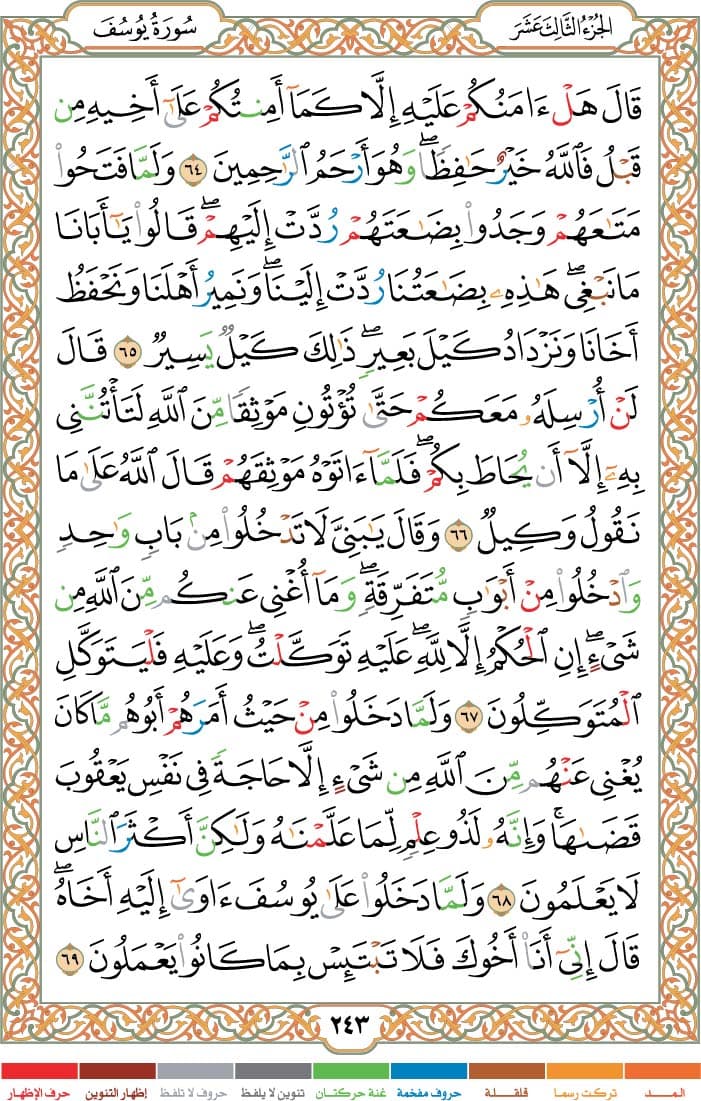 سُورَةُ يُوسُفَ
الجُزْءُ الثَّالِثَ عَشَرَ
قَالَ هَلْ ءَامَنُكُمْ عَلَيْهِ إِلَّا كَمَآ أَمِنتُكُمْ عَلَىٰٓ أَخِيهِ مِن
قَبْلُ فَٱللَّهُ خَيْرٌ حَٰفِظًاۖ وَهُوَ أَرْحَمُ ٱلرَّٰحِمِينَ ٦٤ وَلَمَّا فَتَحُوا۟
مَتَٰعَهُمْ وَجَدُوا۟ بِضَٰعَتَهُمْ رُدَّتْ إِلَيْهِمْۖ قَالُوا۟ يَٰٓأَبَانَا
مَا نَبْغِىۖ هَٰذِهِۦ بِضَٰعَتُنَا رُدَّتْ إِلَيْنَاۖ وَنَمِيرُ أَهْلَنَا وَنَحْفَظُ
أَخَانَا وَنَزْدَادُ كَيْلَ بَعِيرٍۖ ذَٰلِكَ كَيْلٌ يَسِيرٌ ٦٥ قَالَ
لَنْ أُرْسِلَهُۥ مَعَكُمْ حَتَّىٰ تُؤْتُونِ مَوْثِقًا مِّنَ ٱللَّهِ لَتَأْتُنَّنِى
بِهِۦٓ إِلَّآ أَن يُحَاطَ بِكُمْۖ فَلَمَّآ ءَاتَوْهُ مَوْثِقَهُمْ قَالَ ٱللَّهُ عَلَىٰ مَا
نَقُولُ وَكِيلٌ ٦٦ وَقَالَ يَٰبَنِىَّ لَا تَدْخُلُوا۟ مِنۢ بَابٍ وَٰحِدٍ
وَٱدْخُلُوا۟ مِنْ أَبْوَٰبٍ مُّتَفَرِّقَةٍۖ وَمَآ أُغْنِى عَنكُم مِّنَ ٱللَّهِ مِن
شَىْءٍۖ إِنِ ٱلْحُكْمُ إِلَّا لِلَّهِۖ عَلَيْهِ تَوَكَّلْتُۖ وَعَلَيْهِ فَلْيَتَوَكَّلِ
ٱلْمُتَوَكِّلُونَ ٦٧ وَلَمَّا دَخَلُوا۟ مِنْ حَيْثُ أَمَرَهُمْ أَبُوهُم مَّا كَانَ
يُغْنِى عَنْهُم مِّنَ ٱللَّهِ مِن شَىْءٍ إِلَّا حَاجَةً فِى نَفْسِ يَعْقُوبَ
قَضَىٰهَاۚ وَإِنَّهُۥ لَذُو عِلْمٍ لِّمَا عَلَّمْنَٰهُ وَلَٰكِنَّ أَكْثَرَ ٱلنَّاسِ
لَا يَعْلَمُونَ ٦٨ وَلَمَّا دَخَلُوا۟ عَلَىٰ يُوسُفَ ءَاوَىٰٓ إِلَيْهِ أَخَاهُۖ
قَالَ إِنِّىٓ أَنَا۠ أَخُوكَ فَلَا تَبْتَئِسْ بِمَا كَانُوا۟ يَعْمَلُونَ ٦٩
٢٤٣
المـــد تركت رسما قلقـــلة حروف مفخمة غنة حركتـان تنوين لا يلفظ حروف لا تلفظ إظهار التنوين حرف الإظهار